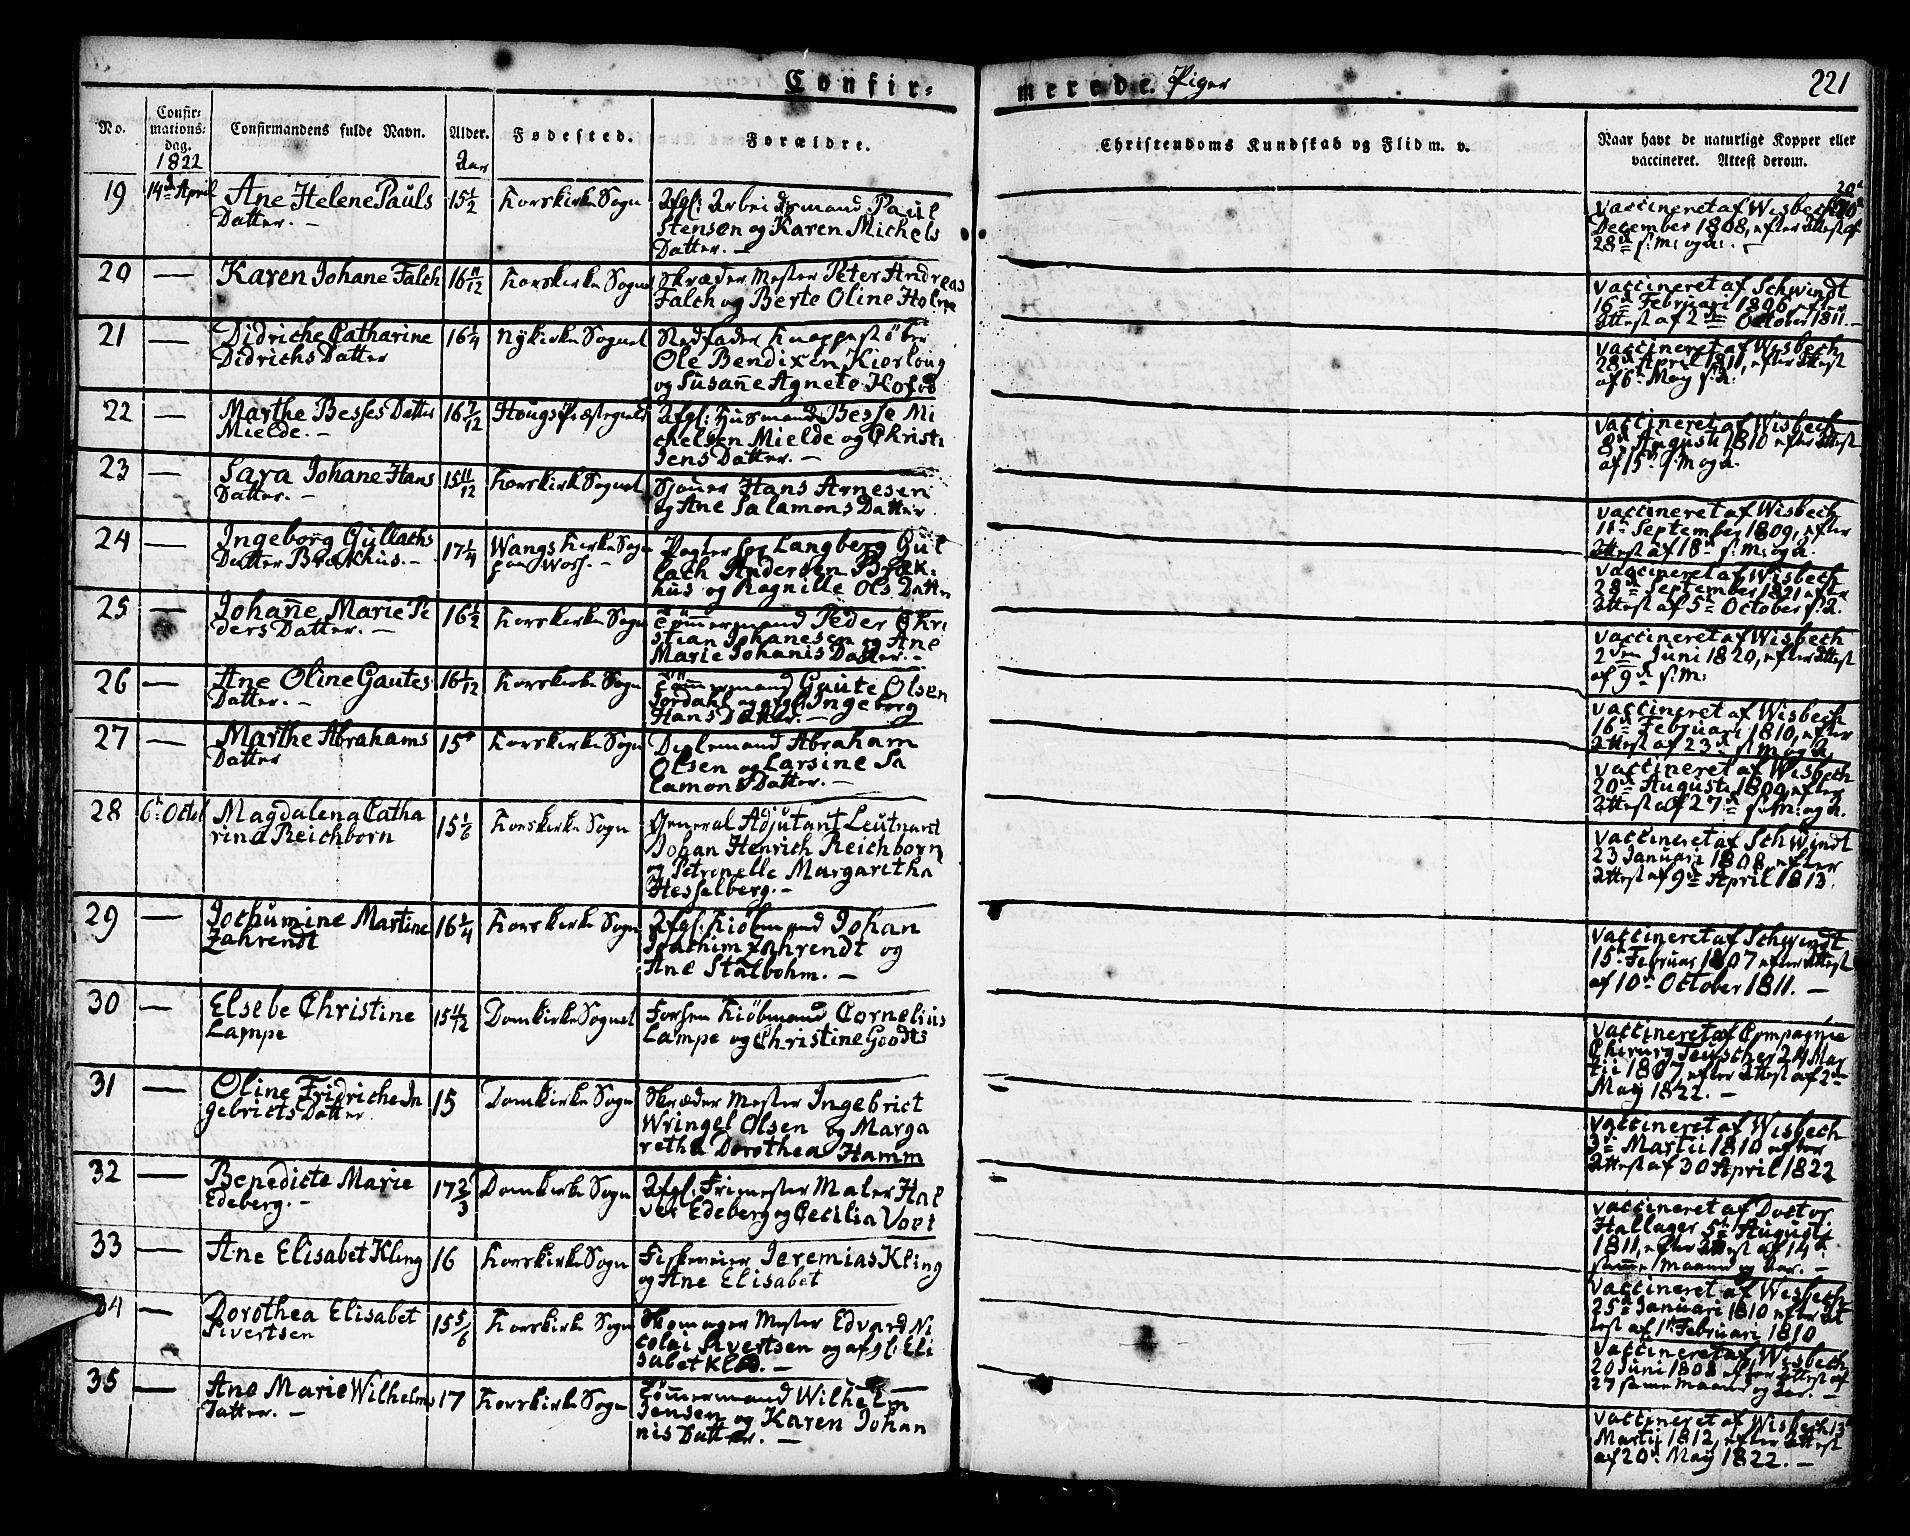 Confir-
merede. Piger
221
No.
Confir-
mations-
dag.
1822
Confirmandens fulde Navn.
Alder.
Aar
Fødested.
Forældre.
Christendoms Kundskab og Flid m. v.
Naar havt de naturlige Kopper eller
vaccineret. Attest derom.
19 14de April Ane Helene Pauls
Datter. 15½ Korskirke Sogn Afgl: Arbeidsmand Paul
Stensen og Karen Michels
Datter.
vaccineret af Wisbech 20d
December 1808, efter Attest af
28de s: M: og A:
20 — Karen Johane Falch 16 11/12 Korskirke Sogn Skræder Mester Peter Andreas
Falch og Berte Oline Holm
vaccineret af Schwindt
16d Februari 1806 efter
Attest af 2den October 1811.
21 — Didriche Catharine
Didrichs Datter 16¼ Nykirke Sognet Stedfader Knappestøber
Ole Bendixen Kiorloug
og Susanne Agnete
vaccineret af Wisbech
28d April 1811, efter Attest
af 6te May s: A.
22 — Marthe Besses Datter
Mielde. 16 7/12 Hougs Præstegield Afgl: Husmand Besse Mi
chelsen Mielde og Christi
Jens Datter.
vaccineret af Wisbech
8d Augusti 1810 efter Attest
af 15de s: M og A.
23 — Sara Johane Hans
Datter. 15 11/12 Korskirke Sognet Sjouer Hans Arnesen
og Ane Salamons Datter
vaccineret af Wisbech
11te September 1809, efter
Attest af 18de s: M: og A.
24 — Ingeborg Gullachs
Datter Brækhus. 17¼ Wangs Kirke Sogn
paa Woss. Pagter for Langberg Gul
lach Andersen Bræk-
hus og Ragnille Ols Datter
vaccineret af Wisbech
28d September 1821 efter
Attest af 5te October s: A.
25 — Johanne Marie Pe
ders Datter. 16½ Korskirke Sogn Tømmermand Peder Chri
stian Johanesen og Ane
Marie Johanis Datter.
vaccineret af Wisbech
2den Juni 1820, efter Attest
af 9d s: M:
26 — Ane Oline Gautes
Datter. 16 1/12 Korskirke Sogn Tømmermand Gaute Olsen
Jordahl og afgl: Ingeborg
Hans Datter.
vaccineret af Wisbech
16d Februari 1810, efter
Attest af 23d s: M og A.
27 — Marthe Abrahams
Datter 15 Korskirke Sogn Abraham
Olsen og Larsine Sa
lamons Datter.
vaccineret af Wisbech
20d Augusti 1809 efter
Attest af 27d s: M: og A.
28 6te Octob Magdalena Catha
rina Reichborn 15 1/6 Korskirke Sogn General Adjutant Leutnant
Johan Henrich Reichborn
og Petronelle Margaretha
Hesselberg.
vaccineret af Schwindt
23 Januari 1808 efter
Attest af 9de April 1813.
29 — Jochumine Martine
Zahrendt 16¼ Korskirke Sogn Afgl: Kiøbmand Johan
Joachim Zahrendt og
Ane Stalbohm.
vaccineret af Schwindt
15de Februar 1807 efter Attest
af 10de October 1811.
30 — Elsebe Christine
Lampe 15 11/12 Domkirke Sognet Forhen Kiøbmand Cornelius
Lampe og Christine Goodts
vaccineret af Compagnie
Chirurg Teuscher 24 Mar
tii 1807 efter Attest af 2den
May 1822.
31 — Oline Fridriche In
gebricts Datter 15 Domkirke Sogn Skræder Mester Ingebrict
Wringel Olsen og Marga
retha Dorothea Hamm
vaccineret af Wisbech
3de Martii 1810 efter
Attest af 30 April 1822
32 — Benedicte Marie
Edeberg. 17⅔ Domkirke Sogn Afgl: Frimester Maler Hal
vei Edeberg og Cecilia Voet
vaccineret af Doctor
Hallager 5te August
1811, efter Attest af 14d
samme Maaned og Aar.
33 — Ane Elisabet Kling 16 Korskirke Sogn Fiskeveier Jeremias Kling
og Ane Elisabet
vaccineret af Wisbech
25de Januari 1810 efter At
test af 1te Februari 1810
34 — Dorothea Elisabet
Sivertsen 15 5/6 Korskirke Sogn Skomager Mester Edvard Ni
colai Sivertsen og afgl: Eli
sabet
vaccineret af Wisbech
20 Juni 1808 efter Attest af
27 samme Maaned og Aar.
35 — Ane Marie Wilhelms
Datter. 17 Korskirke Sogn Tømmermand Wilhelm
Jensen og Karen Johan
nis Datter.
vaccineret af Wisbech 13d
Martij 1812, efter Attest
af 20d May 1822.